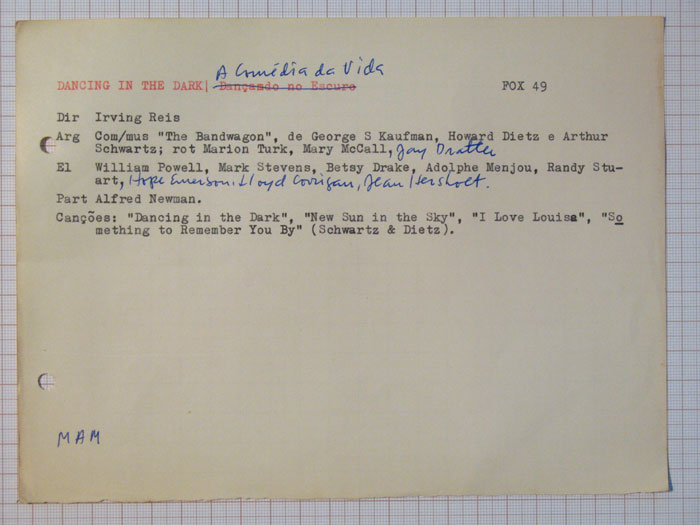 A Comédia da Vida
DANCING IN THE DARK| Dançando no Escuro FOX 49
Dir Irving Reis
Arg Com/mus "The Bandwagon", de George S Kaufman, Howard Dietz e Arthur
Schwartz; rot Marion Turk, Mary McCall, Jay Dratler
El William Powell, Mark Stevens, Betsy Drake, Adolphe Menjou, Randy Stu-
art, Hope Emerson, Lloyd Corrigan, Jean Hersholt.
Part Alfred Newman.
Canções: "Dancing in the Dark", "New Sun in the Sky", "I Love Louisa", "So
mething to Remember You By" (Schwartz & Dietz).
MAM